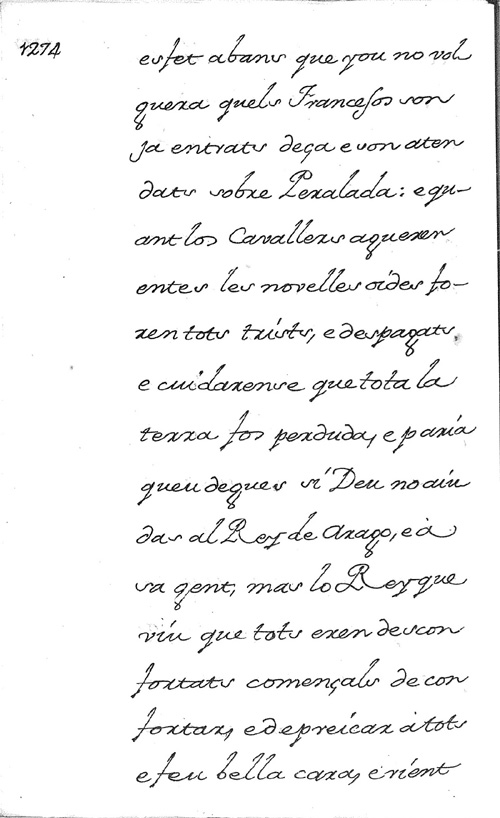 1274
esfet abans que you no vol
guera quels Francesos son
ja entrats deça e son aten
dats sobre Peralada: e qu-
ant los Cavallers agueren
entes les novelles oídes fo-
ren tots trists, e despagats,
e cuidarense que tota la
terra fos perduda, e paria
queu degues si Deu no aiu
das al Rey de Arago, e à
sa gent, mas lo Rey que
viu que tots eren descon
fortats començals de con
fortar, e de preicar à tots
e feu bella cara, e rient